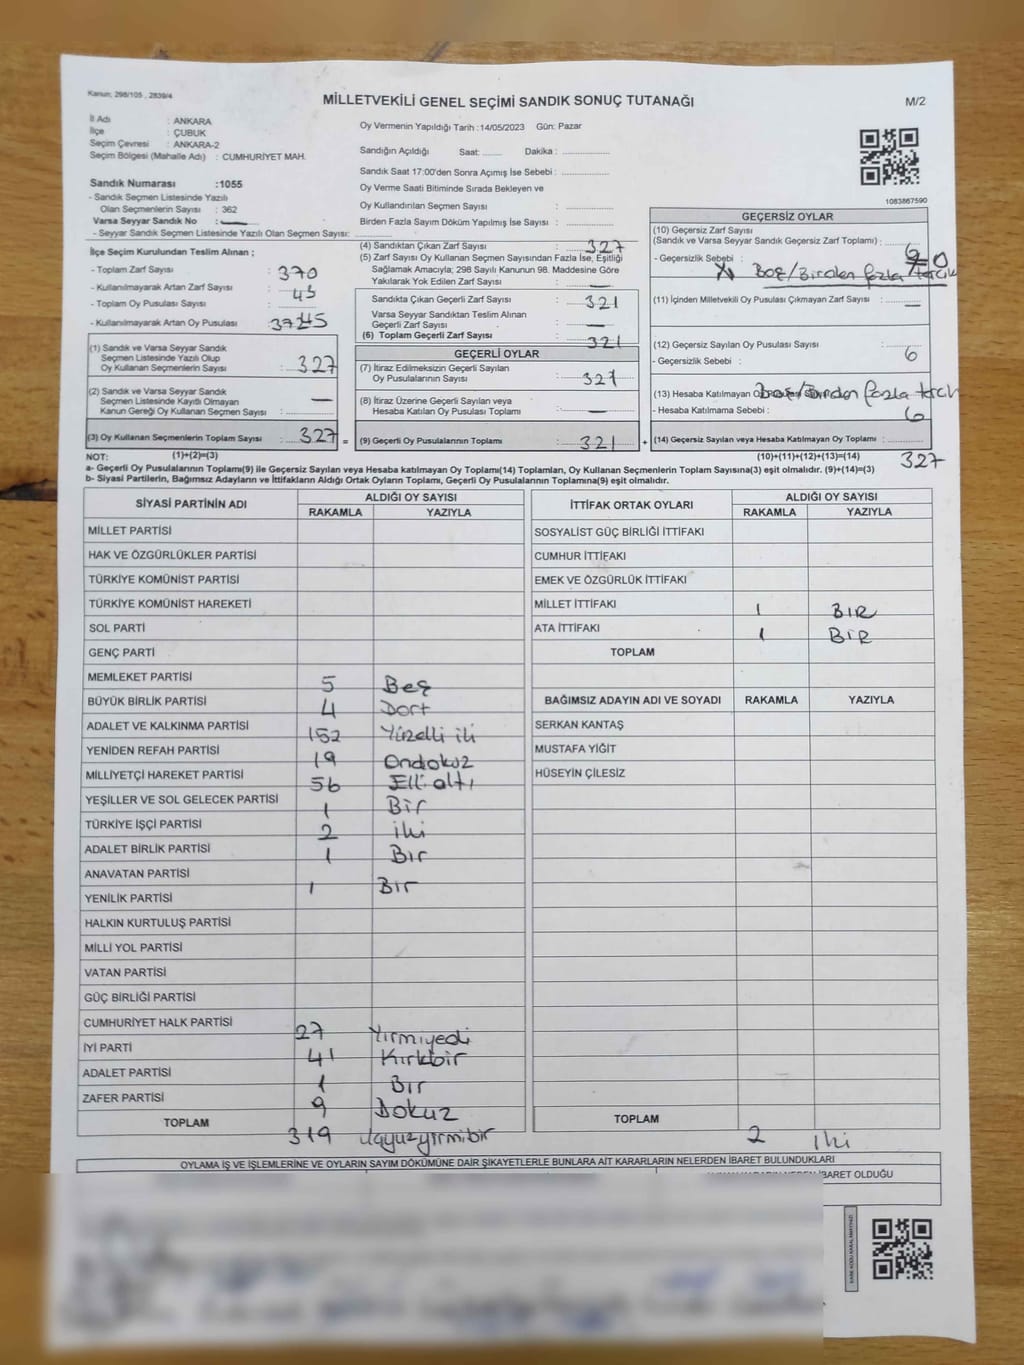 Kanun; 298/105 , 2839/4
MİLLETVEKİLİ GENEL SEÇİMİ SANDIK SONUÇ TUTANAĞI
M/2
İl Adı : ANKARA
İlçe : ÇUBUK
Seçim Çevresi : ANKARA-2
Seçim Bölgesi (Mahalle Adı) : CUMHURİYET MAH.
Sandık Numarası :1055
- Sandık Seçmen Listesinde Yazılı
Olan Seçmenlerin Sayısı : 362
Varsa Seyyar Sandık No :
- Seyyar Sandık Seçmen Listesinde Yazılı Olan Seçmen Sayısı:
Oy Vermenin Yapıldığı Tarih :14/05/2023 Gün: Pazar
Sandığın Açıldığı Saat: Dakika :
Sandık Saat 17:00'den Sonra Açımış İse Sebebi :
Oy Verme Saati Bitiminde Sırada Bekleyen ve
Oy Kullandırılan Seçmen Sayısı :
Birden Fazla Sayım Döküm Yapılmış İse Sayısı :
1083867590
İlçe Seçim Kurulundan Teslim Alınan ;
- Toplam Zarf Sayısı : 370
- Kullanılmayarak Artan Zarf Sayısı : 43
- Toplam Oy Pusulası Sayısı :
- Kullanılmayarak Artan Oy Pusulası :
(1) Sandık ve Varsa Seyyar Sandık
Seçmen Listesinde Yazılı Olup
Oy Kullanan Seçmenlerin Sayısı : 327
(2) Sandık ve Varsa Seyyar Sandık
Seçmen Listesinde Kayıtlı Olmayan
Kanun Gereği Oy Kullanan Seçmen Sayısı : —
(3) Oy Kullanan Seçmenlerin Toplam Sayısı : 327 =
(4) Sandıktan Çıkan Zarf Sayısı : 327
(5) Zarf Sayısı Oy Kullanan Seçmen Sayısından Fazla İse, Eşitliği
Sağlamak Amacıyla; 298 Sayılı Kanunun 98. Maddesine Göre
Yakılarak Yok Edilen Zarf Sayısı : —
Sandıkta Çıkan Geçerli Zarf Sayısı : 321
Varsa Seyyar Sandıktan Teslim Alınan
Geçerli Zarf Sayısı : —
(6) Toplam Geçerli Zarf Sayısı : 321
GEÇERLİ OYLAR
(7) İtiraz Edilmeksizin Geçerli Sayılan
Oy Pusulalarının Sayısı : 321
(8) İtiraz Üzerine Geçerli Sayılan veya
Hesaba Katılan Oy Pusulası Toplamı : —
(9) Geçerli Oy Pusulalarının Toplamı : 321 +
GEÇERSİZ OYLAR
(10) Geçersiz Zarf Sayısı
(Sandık ve Varsa Seyyar Sandık Geçersiz Zarf Toplamı) :
- Geçersizlik Sebebi : 0
Boş/Birden fazla tercih
(11) İçinden Milletvekili Oy Pusulası Çıkmayan Zarf Sayısı : —
(12) Geçersiz Sayılan Oy Pusulası Sayısı : 6
- Geçersizlik Sebebi :
Boş/Birden fazla tercih
(13) Hesaba Katılmayan
- Hesaba Katılmama Sebebi : 6
(14) Geçersiz Sayılan veya Hesaba Katılmayan Oy Toplamı :
327
NOT: (1)+(2)=(3)
(10)+(11)+(12)+(13)=(14)
a- Geçerli Oy Pusulalarının Toplamı(9) ile Geçersiz Sayılan veya Hesaba katılmayan Oy Toplamı(14) Toplamları, Oy Kullanan Seçmenlerin Toplam Sayısına(3) eşit olmalıdır. (9)+(14)=(3)
b- Siyasi Partilerin, Bağımsız Adayların ve İttifakların Aldığı Ortak Oyların Toplamı, Geçerli Oy Pusulalarının Toplamına(9) eşit olmalıdır.
SİYASİ PARTİNİN ADI ALDIĞI OY SAYISI
RAKAMLA YAZIYLA
MİLLET PARTİSİ
HAK VE ÖZGÜRLÜKLER PARTİSİ
TÜRKİYE KOMÜNİST PARTİSİ
TÜRKİYE KOMÜNİST HAREKETİ
SOL PARTİ
GENÇ PARTİ
MEMLEKET PARTİSİ 5 Beş
BÜYÜK BİRLİK PARTİSİ 4 Dört
ADALET VE KALKINMA PARTİSİ 152 Yüzelli iki
YENİDEN REFAH PARTİSİ 19 Ondokuz
MİLLİYETÇİ HAREKET PARTİSİ 56 Elli altı
YEŞİLLER VE SOL GELECEK PARTİSİ 1 Bir
TÜRKİYE İŞÇİ PARTİSİ 2 iki
ADALET BİRLİK PARTİSİ 1 Bir
ANAVATAN PARTİSİ 1 Bir
YENİLİK PARTİSİ
HALKIN KURTULUŞ PARTİSİ
MİLLİ YOL PARTİSİ
VATAN PARTİSİ
GÜÇ BİRLİĞİ PARTİSİ
CUMHURİYET HALK PARTİSİ 27 Yirmiyedi
İYİ PARTİ 41 Kırkbir
ADALET PARTİSİ 1 Bir
ZAFER PARTİSİ 9 Dokuz
TOPLAM 319 üçyüzyirmibir
İTTİFAK ORTAK OYLARI ALDIĞI OY SAYISI
RAKAMLA YAZIYLA
SOSYALİST GÜÇ BİRLİĞİ İTTİFAKI
CUMHUR İTTİFAKI
EMEK VE ÖZGÜRLÜK İTTİFAKI
MİLLET İTTİFAKI 1 BİR
ATA İTTİFAKI 1 BİR
TOPLAM
BAĞIMSIZ ADAYIN ADI VE SOYADI RAKAMLA YAZIYLA
SERKAN KANTAŞ
MUSTAFA YİĞİT
HÜSEYİN ÇİLESİZ
TOPLAM 2 iki
OYLAMA İŞ VE İŞLEMLERİNE VE OYLARIN SAYIM DÖKÜMÜNE DAİR ŞİKAYETLERLE BUNLARA AİT KARARLARIN NELERDEN İBARET BULUNDUKLARI
İBARET OLDUĞU